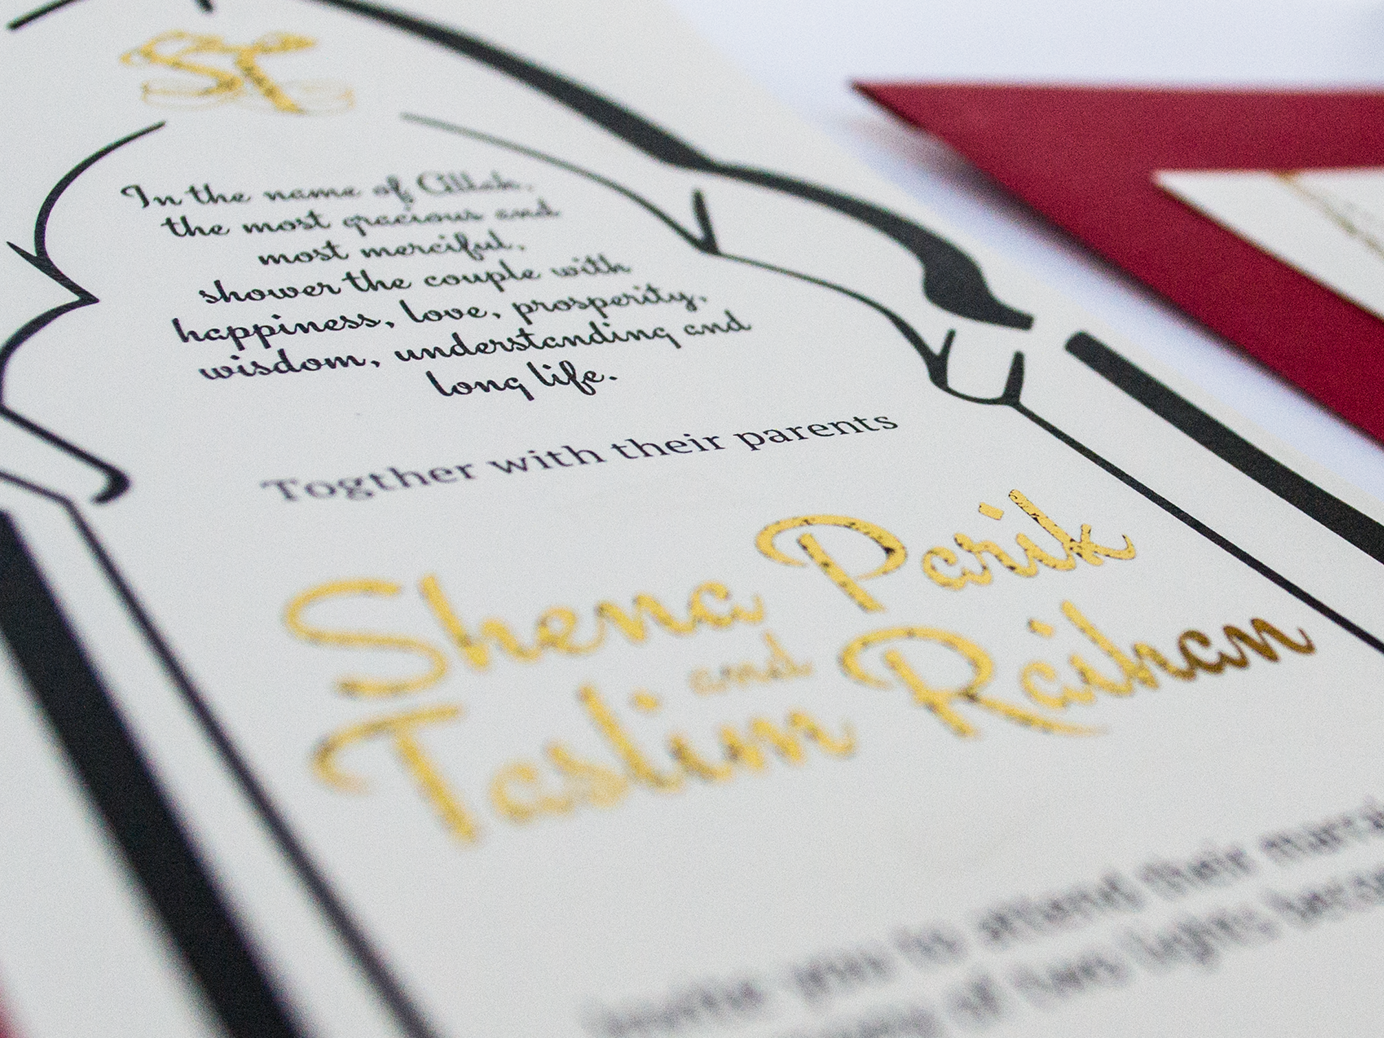 ST
In the name of Allah,
the most gracious and
most merciful,
shower the couple with
happiness, love, prosperity,
wisdom, understanding and
long life.
Togther with their parents
Shena Parik
and
Taslim Raihan
invite you to attend their
of two lights